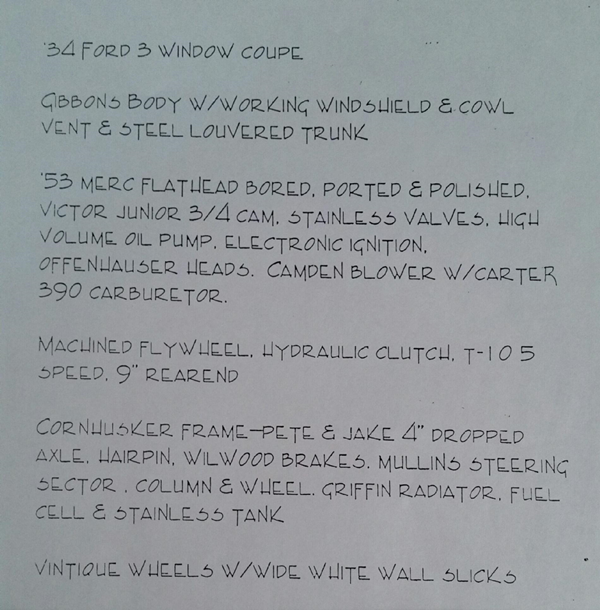 '34 FORD 3 WINDOW COUPE
GIBBONS BODY W/WORKING WINDSHIELD & COWL
VENT & STEEL LOUVERED TRUNK
'53 MERC FLATHEAD BORED, PORTED & POLISHED,
VICTOR JUNIOR 3/4 CAM, STAINLESS VALVES, HIGH
VOLUME OIL PUMP, ELECTRONIC IGNITION,
OFFENHAUSER HEADS. CAMDEN BLOWER W/CARTER
390 CARBURETOR.
MACHINED FLYWHEEL, HYDRAULIC CLUTCH, T-10 5
SPEED, 9" REAREND
CORNHUSKER FRAME-PETE & JAKE 4" DROPPED
AXLE, HAIRPIN, WILWOOD BRAKES. MULLINS STEERING
SECTOR , COLUMN & WHEEL. GRIFFIN RADIATOR, FUEL
CELL & STAINLESS TANK
VINTIQUE WHEELS W/WIDE WHITE WALL SLICKS